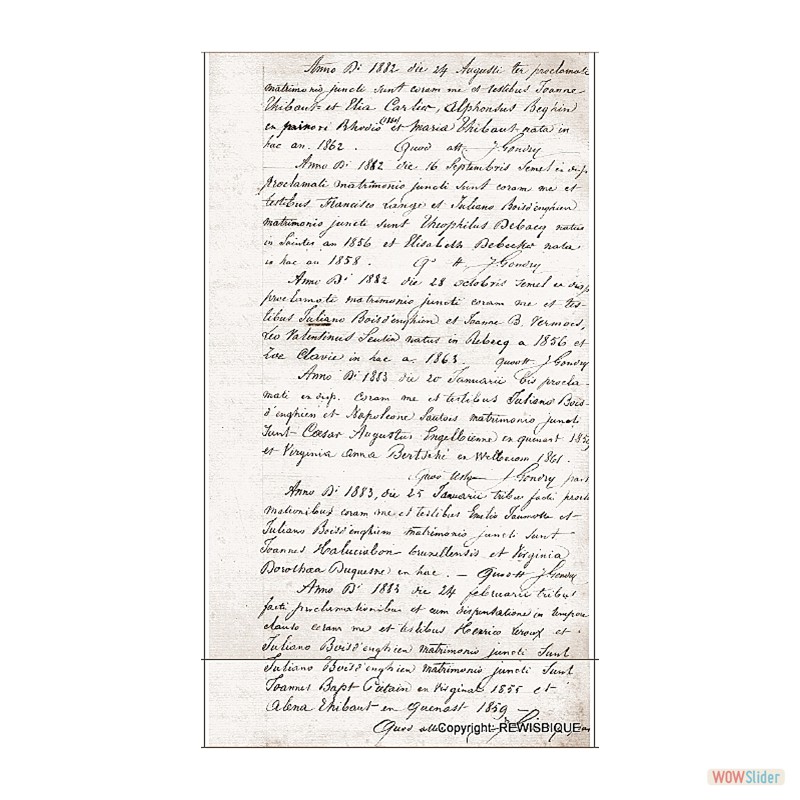 Anno Di 1882 die 24 Augusti ter proclamati
matrimonio juncti sunt coram me et testibus Joanne
Thibaut et Elia Carlier, Alphonsus Beghin
en Rhodio et Maria Thibaut nata in
hac an. 1862. Quod att. J Gondry
Anno Di 1882 die 16 Septembris semel en disp.
proclamati matrimonio juncti sunt coram me et
testibus Francisco Lange et Juliano Boisd'enghien
matrimonio juncti sunt Theophilus Debacq natus
in Saintes an 1856 et Elisabeth Debecker nata
in hac an 1858. Qd tt J Gondry
Anno Di 1882 die 28 octobris semel en disp
proclamati matrimonio juncti coram me et tes-
tibus Juliano Boisd'enghien et Joanne B. Vermoes,
Leo Valentinus natus in Rebecq a 1856 et
Zoe Clavie in hac a. 1863. quod tt J Gondry
Anno Di 1883 die 20 Januarii bis procla-
mati en disp. coram me et testibus Juliano Bois-
d'enghien et Napoleone matrimonio juncti
sunt Cæsar Augustus Engelbienne en quenast 1859
et Virginia Anna en 1861.
Quod J Gondry
Anno Di 1883, die 25 Januarii tribus factis procla
mationibus coram me et testibus Emilio et
Juliano Boisd'enghien matrimonio juncti sunt
Joannes bruxellensis et Virginia
Dorothæa Duquesne en hac. — Quod tt J Gondry
Anno Di 1883 die 24 februarii tribus
factis proclamationibus et cum dispensatione in tempore
clauso coram me et testibus Henrico Leroux et
Juliano Boisd'enghien matrimonio juncti sunt
Juliano Boisd'enghien matrimonio juncti sunt
Joannes Bapt en Virginal 1855 et
Alena Thibaut en Quenast 1859 —
Quod
Copyright: REWISBIQUE
WOWSlider